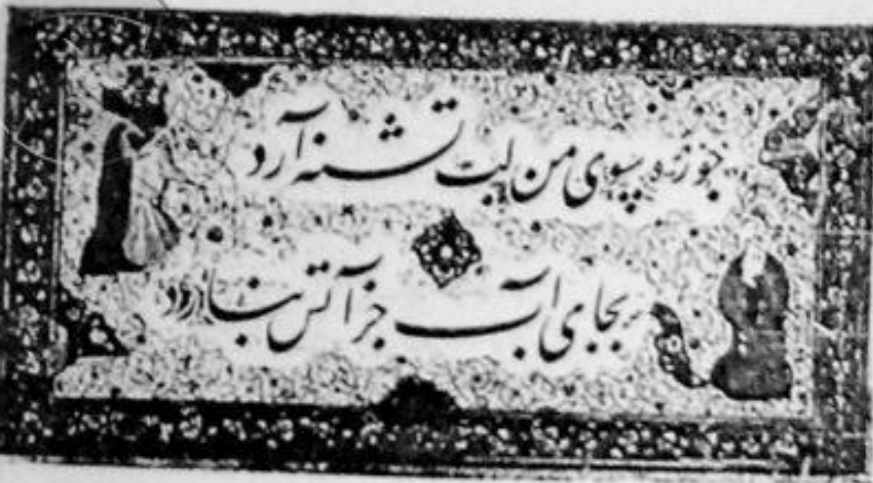 چو بسوی من لب تشنه آرد
بجای آب جز آتش نبارد